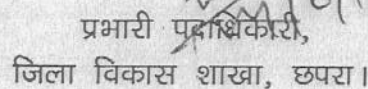 प्रभारी पदाधिकारी,
जिला विकास शाखा, छपरा।